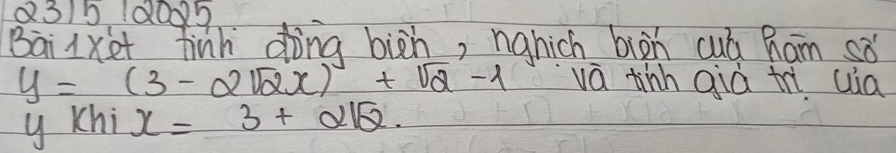 23/5/2025
Bài 1 xét tính đồng biến, nghịch biến của hàm số
y = (3 - 2√2x) + √2 - 1 và tính giá trị của
y khi x = 3 + 2√2.